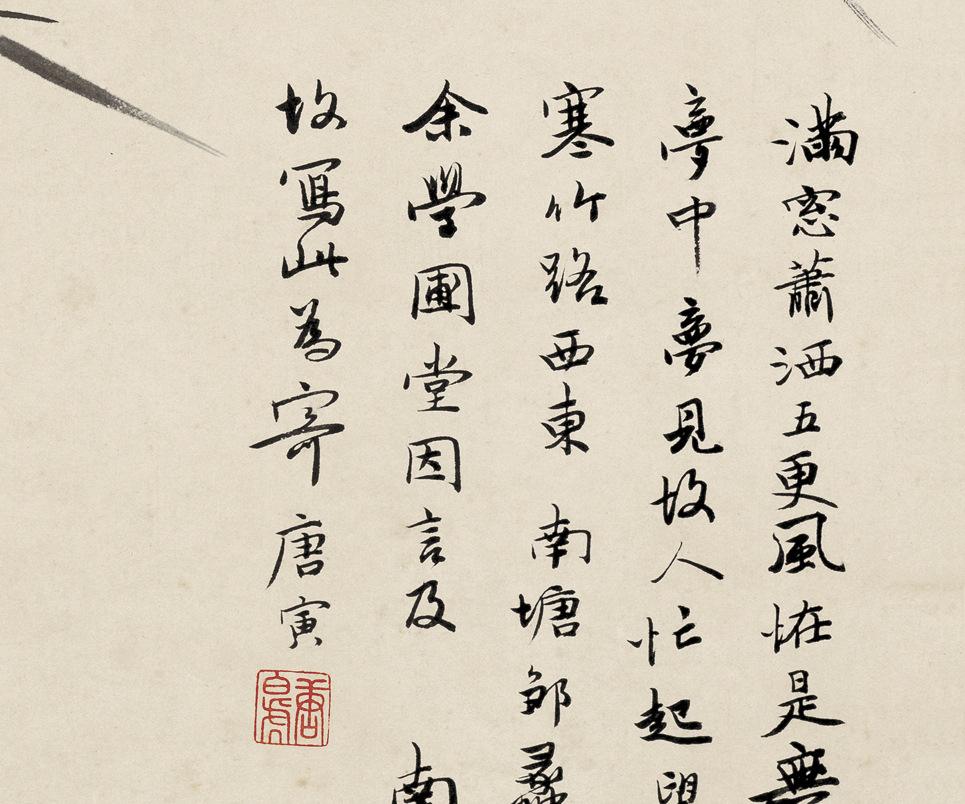 滿窓蕭洒五更風恠是無
夢中夢見故人忙起望
寒竹路西東　南塘鄒彛
余學圃堂因言及　南
故寫此為寄　唐寅
唐寅